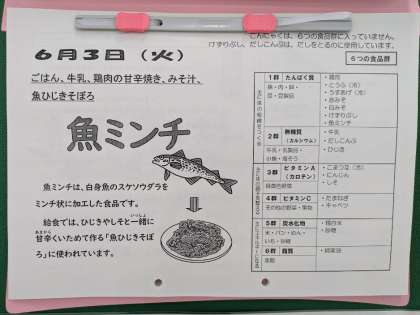 こんにゃくは、6つの食品群に入っていません。
けずりぶし、だしこんぶは、だしをとるのに使用しています。
6月3日（火）
6つの食品群
ごはん、牛乳、鶏肉の甘辛焼き、みそ汁、
魚ひじきそぼろ
魚ミンチ
魚ミンチは、白身魚のスケソウダラを
ミンチ状に加工した食品です。
給食では、ひじきやしそと一緒に
いっしょ
甘辛くいためて作る「魚ひじきそぼ
あまから
ろ」に使われています。
1群 たんぱく質
魚・肉・卵・
豆・豆製品
・鶏肉
・とうふ（冷）
・うすあげ（冷）
・赤みそ
・白みそ
・けずりぶし
・魚ミンチ
2群 無機質
（カルシウム）
牛乳・乳製品・
小魚・海そう
・牛乳
・だしこんぶ
・ひじき
3群 ビタミンA
（カロテン）
緑黄色野菜
・こまつな（冷）
・にんじん
・しそ
4群 ビタミンC
その他の野菜・果物
・たまねぎ
・キャベツ
5群 炭水化物
米・パン・めん・
いも・砂糖
・精白米
・砂糖
6群 脂質
油脂
・綿実油